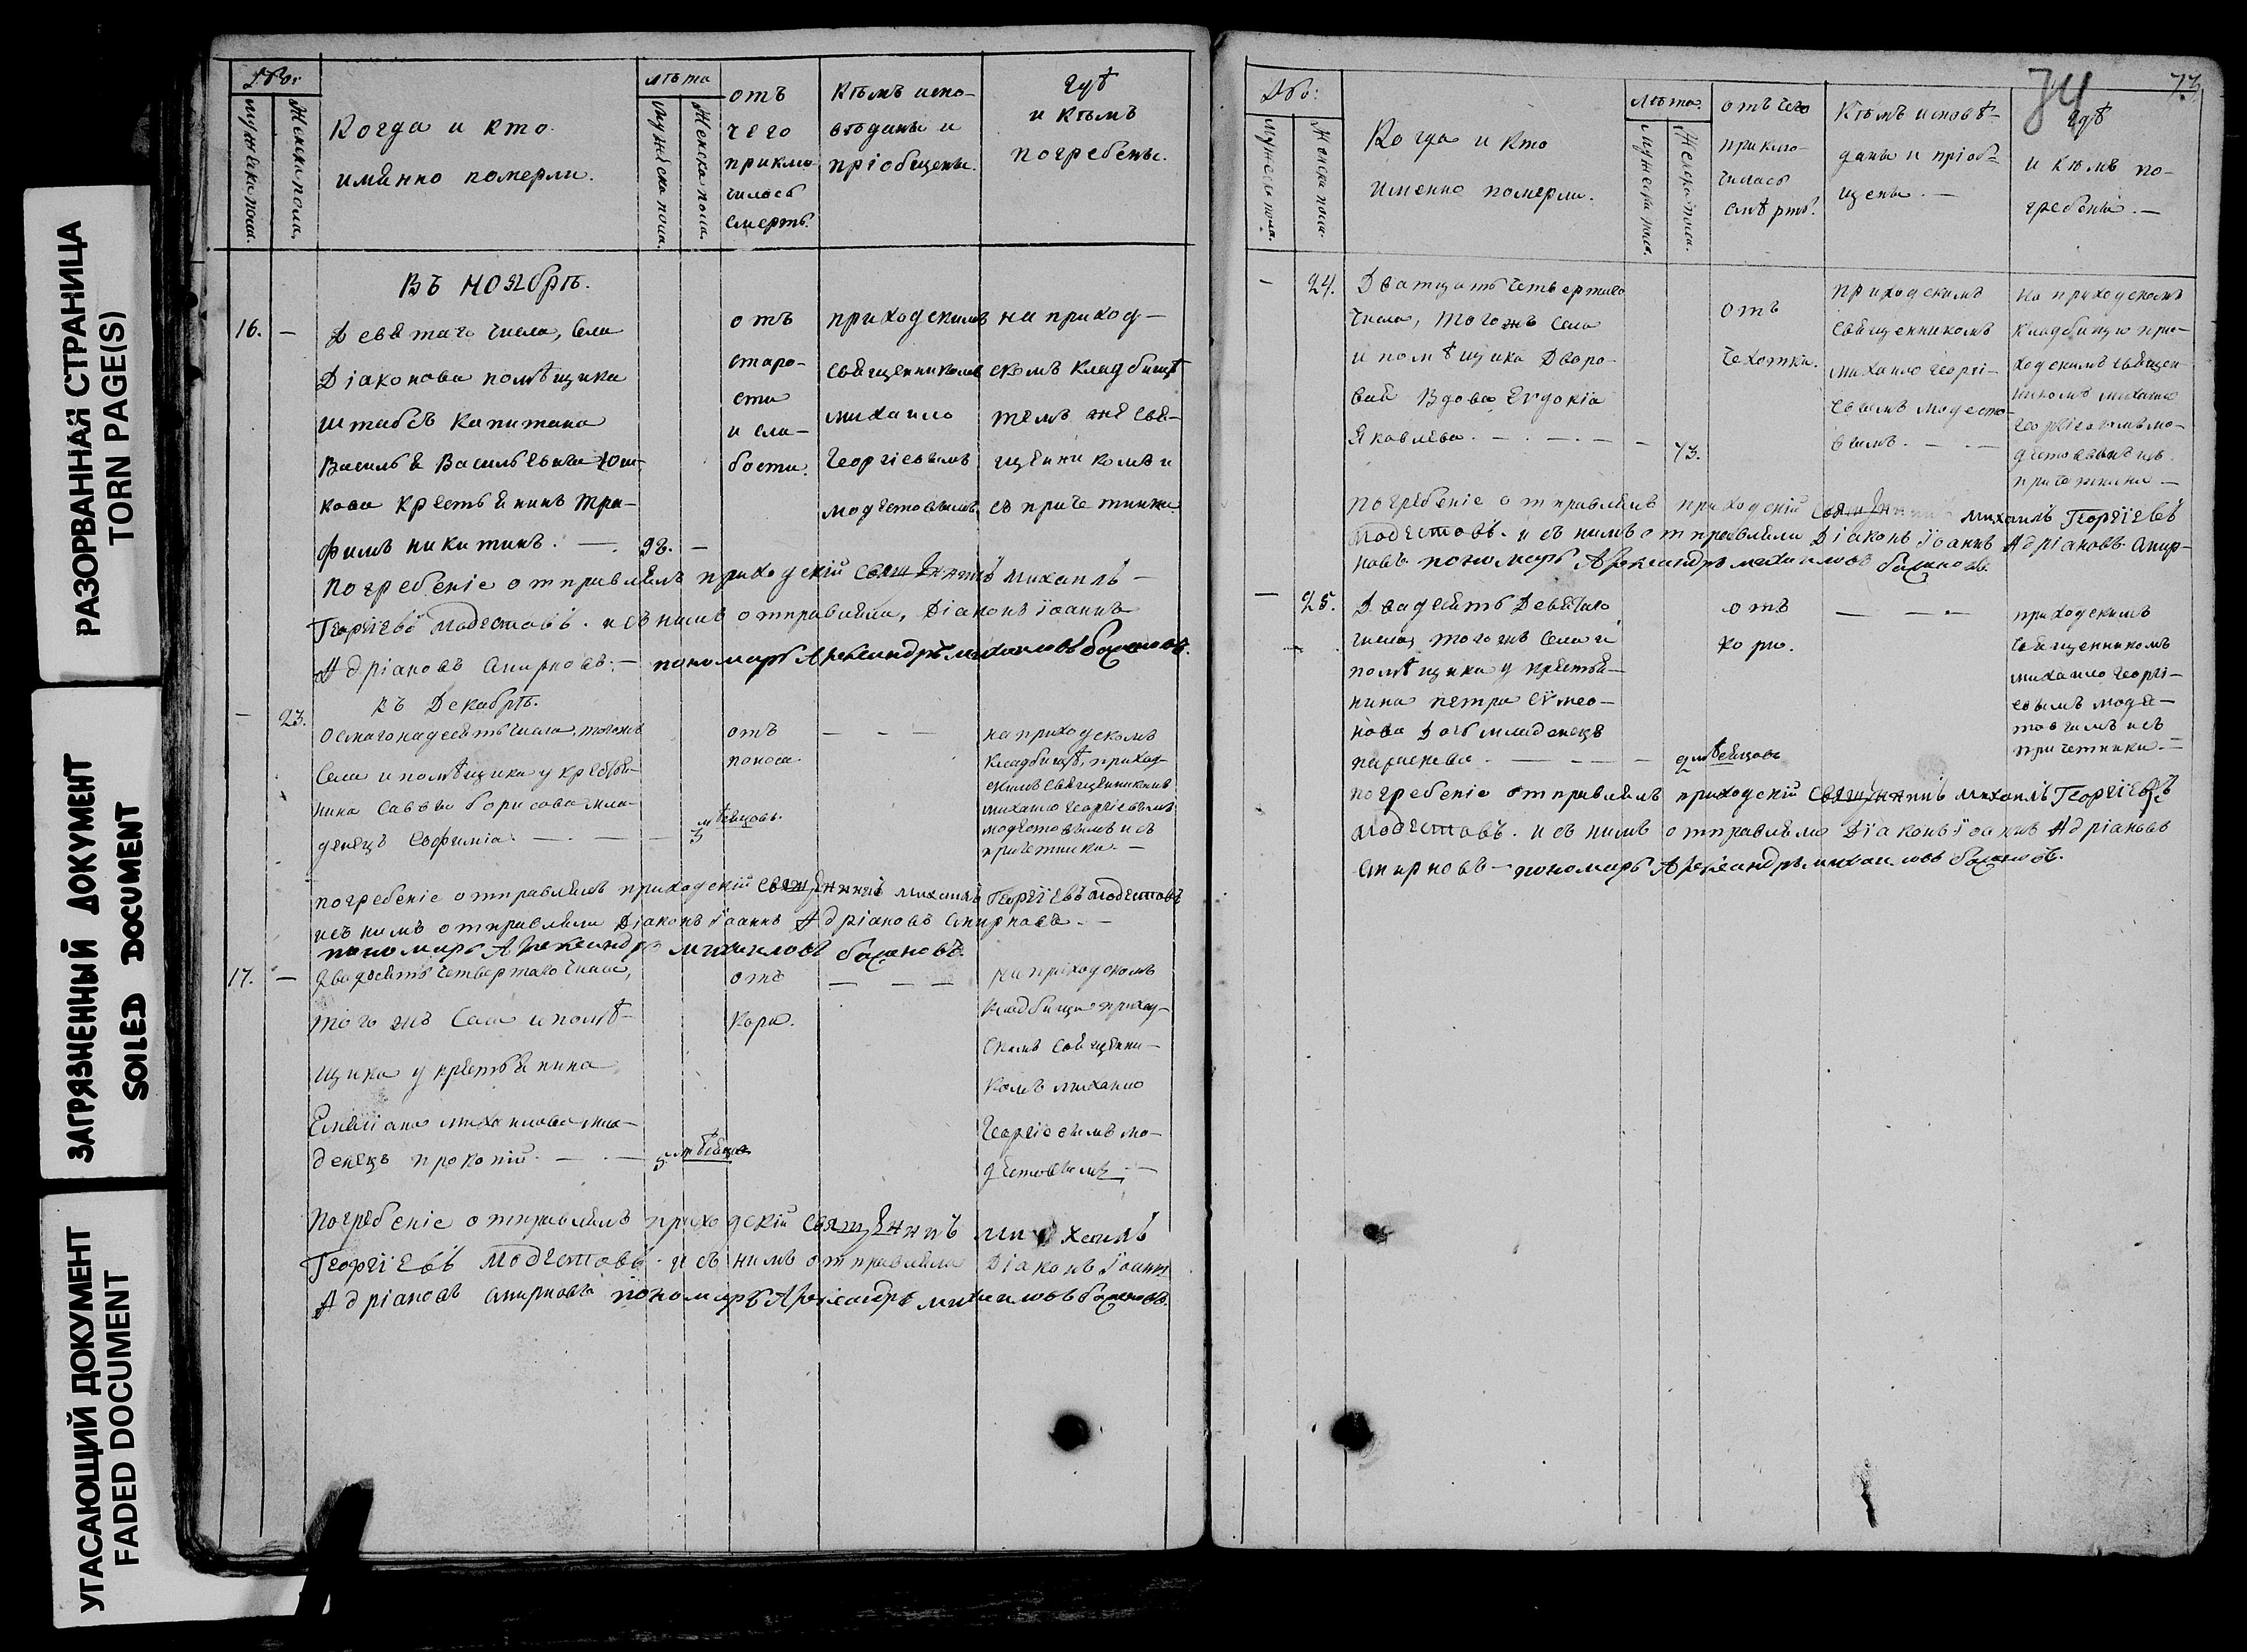 РАЗОРВАННАЯ СТРАНИЦА
TORN PAGE(S)
ЗАГРЯЗНЕННЫЙ ДОКУМЕНТ
SOILED DOCUMENT
УГАСАЮЩИЙ ДОКУМЕНТ
FADED DOCUMENT
мужска пола.
Женска пола.
Когда и кто
имянно померли.
лѣта
мужеска пола.
Женска пола.
отъ
чего
приклю-
чилась
смерть.
Кѣмъ испо-
вѣданы и
пріобщены.
гдѣ
и кѣмъ
погребены.
Въ ноябрѣ.
16. —
Девятаго числа, села
Діаконова помѣщика
штабсъ капитана
Василья Васильевича Юш-
кова крестьянинъ Тро-
фимъ никитинъ. —
92. —
отъ
старо-
сти
и сла-
бости.
приходскимъ
священникомъ
михаило
Георгіевымъ
модестовымъ
на приход-
скомъ кладбищѣ
темъ же свя-
щенникомъ и
съ причетники
погребеніе отправлялъ приходскій священникъ михаилъ —
Георгіевъ модестовъ. и съ нимъ отправляли, Діаконъ іоаннъ
Адріановъ смирновъ. — пономарь Александръ михаиловъ
въ Декабрѣ.
— 23.
осмагонадесять числа, тогожъ
села и помѣщика у крестья-
нина Саввы борисова мла-
денецъ Евфимія. —
3
отъ
поноса.
— — —
на приходскомъ
кладбищѣ, приход-
скимъ священникомъ
михаило Георгіевымъ
модестовымъ и съ
причетники. —
погребеніе отправлялъ приходскій священникъ михаилъ Георгіевъ модестовъ
и съ нимъ отправляли Діаконъ іоаннъ Адріановъ смирновъ. —
пономарь Александръ михаиловъ
17. —
двадесять четвертаго числа,
того жъ села и помѣ-
щика у крестьянина
Емеліана михаилова мла-
денецъ прокопій. —
5
отъ
кори.
— — —
на приходскомъ
кладбищѣ приход-
скимъ священни-
комъ михаило
Георгіевымъ мо-
дестовымъ —
погребеніе отправлялъ приходскій священникъ михаилъ
Георгіевъ модестовъ. и съ нимъ отправляли Діаконъ іоаннъ
Адріановъ смирновъ пономарь Александръ михаиловъ
74
73
мужеска пола.
Женска пола.
Когда и кто
именно померли.
лѣта.
мужеска пола.
Женска пола.
отъ чего
приклю-
чилась
смѣрть.
Кѣмъ исповѣ-
даны и пріоб-
щены. —
гдѣ
и кѣмъ по-
гребены. —
— 24.
Дватцать четвертаго
числа, тогожъ села
и помѣщика Дворо-
вая Вдова Евдокіа
Яковлева. —
73.
отъ
чехотки.
приходскимъ
священникомъ
михаило Георгі-
евымъ модесто-
вымъ. —
на приходскомъ
кладбищѣ при-
ходскимъ священ-
никомъ михаило
Георгіевымъ мо-
дестовымъ и съ
причетники —
погребеніе отправлялъ приходскій священникъ михаилъ Георгіевъ
модестовъ. и съ нимъ отправляли Діаконъ іоаннъ Адріановъ смир-
новъ пономарь Александръ михаиловъ
— 25.
Двадесять Девятаго
числа, тогожъ села и
помѣщика у крестья-
нина петра симео-
нова Дочь младенецъ
параскева. —
2
отъ
кори.
— — —
приходскимъ
священникомъ
михаило Георгі-
евымъ модес-
товымъ и съ
причетники. —
погребеніе отправлялъ приходскій священникъ михаилъ Георгіевъ
модестовъ. и съ нимъ отправляли Діаконъ іоаннъ Адріановъ
смирновъ — пономарь Александръ михаиловъ